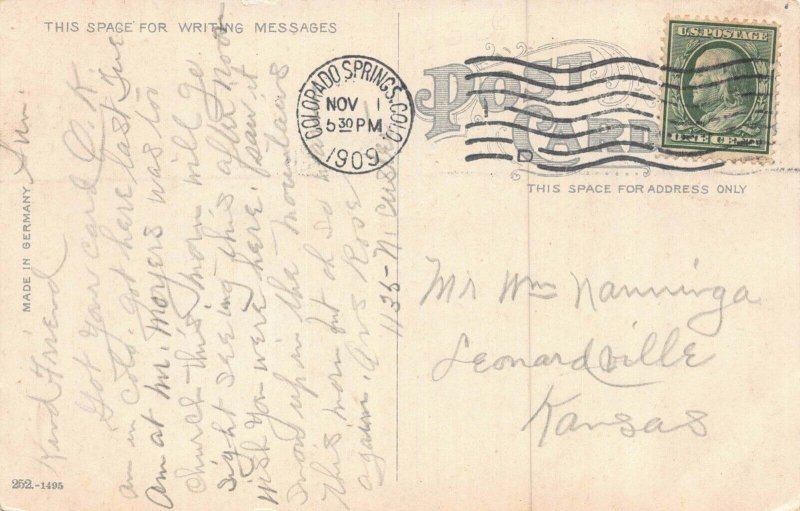 THIS SPACE FOR WRITING MESSAGES
POST CARD
U.S. POSTAGE
ONE CENT
COLORADO SPRINGS, COLO.
NOV 1
5 30 PM
1909
D
THIS SPACE FOR ADDRESS ONLY
MADE IN GERMANY
Sun.
Kind Friend
Got your card O.K.
am in Colo. got here last Tue
am at Mr. Moyers was to
church this morn will go
sight seeing this after noon
wish you were here. I saw it
snow up in the mountains
this morn but oh so
again. Ans
1135 - N.
Mr Wm Nanninga
Leonardville
Kansas
252.-1495